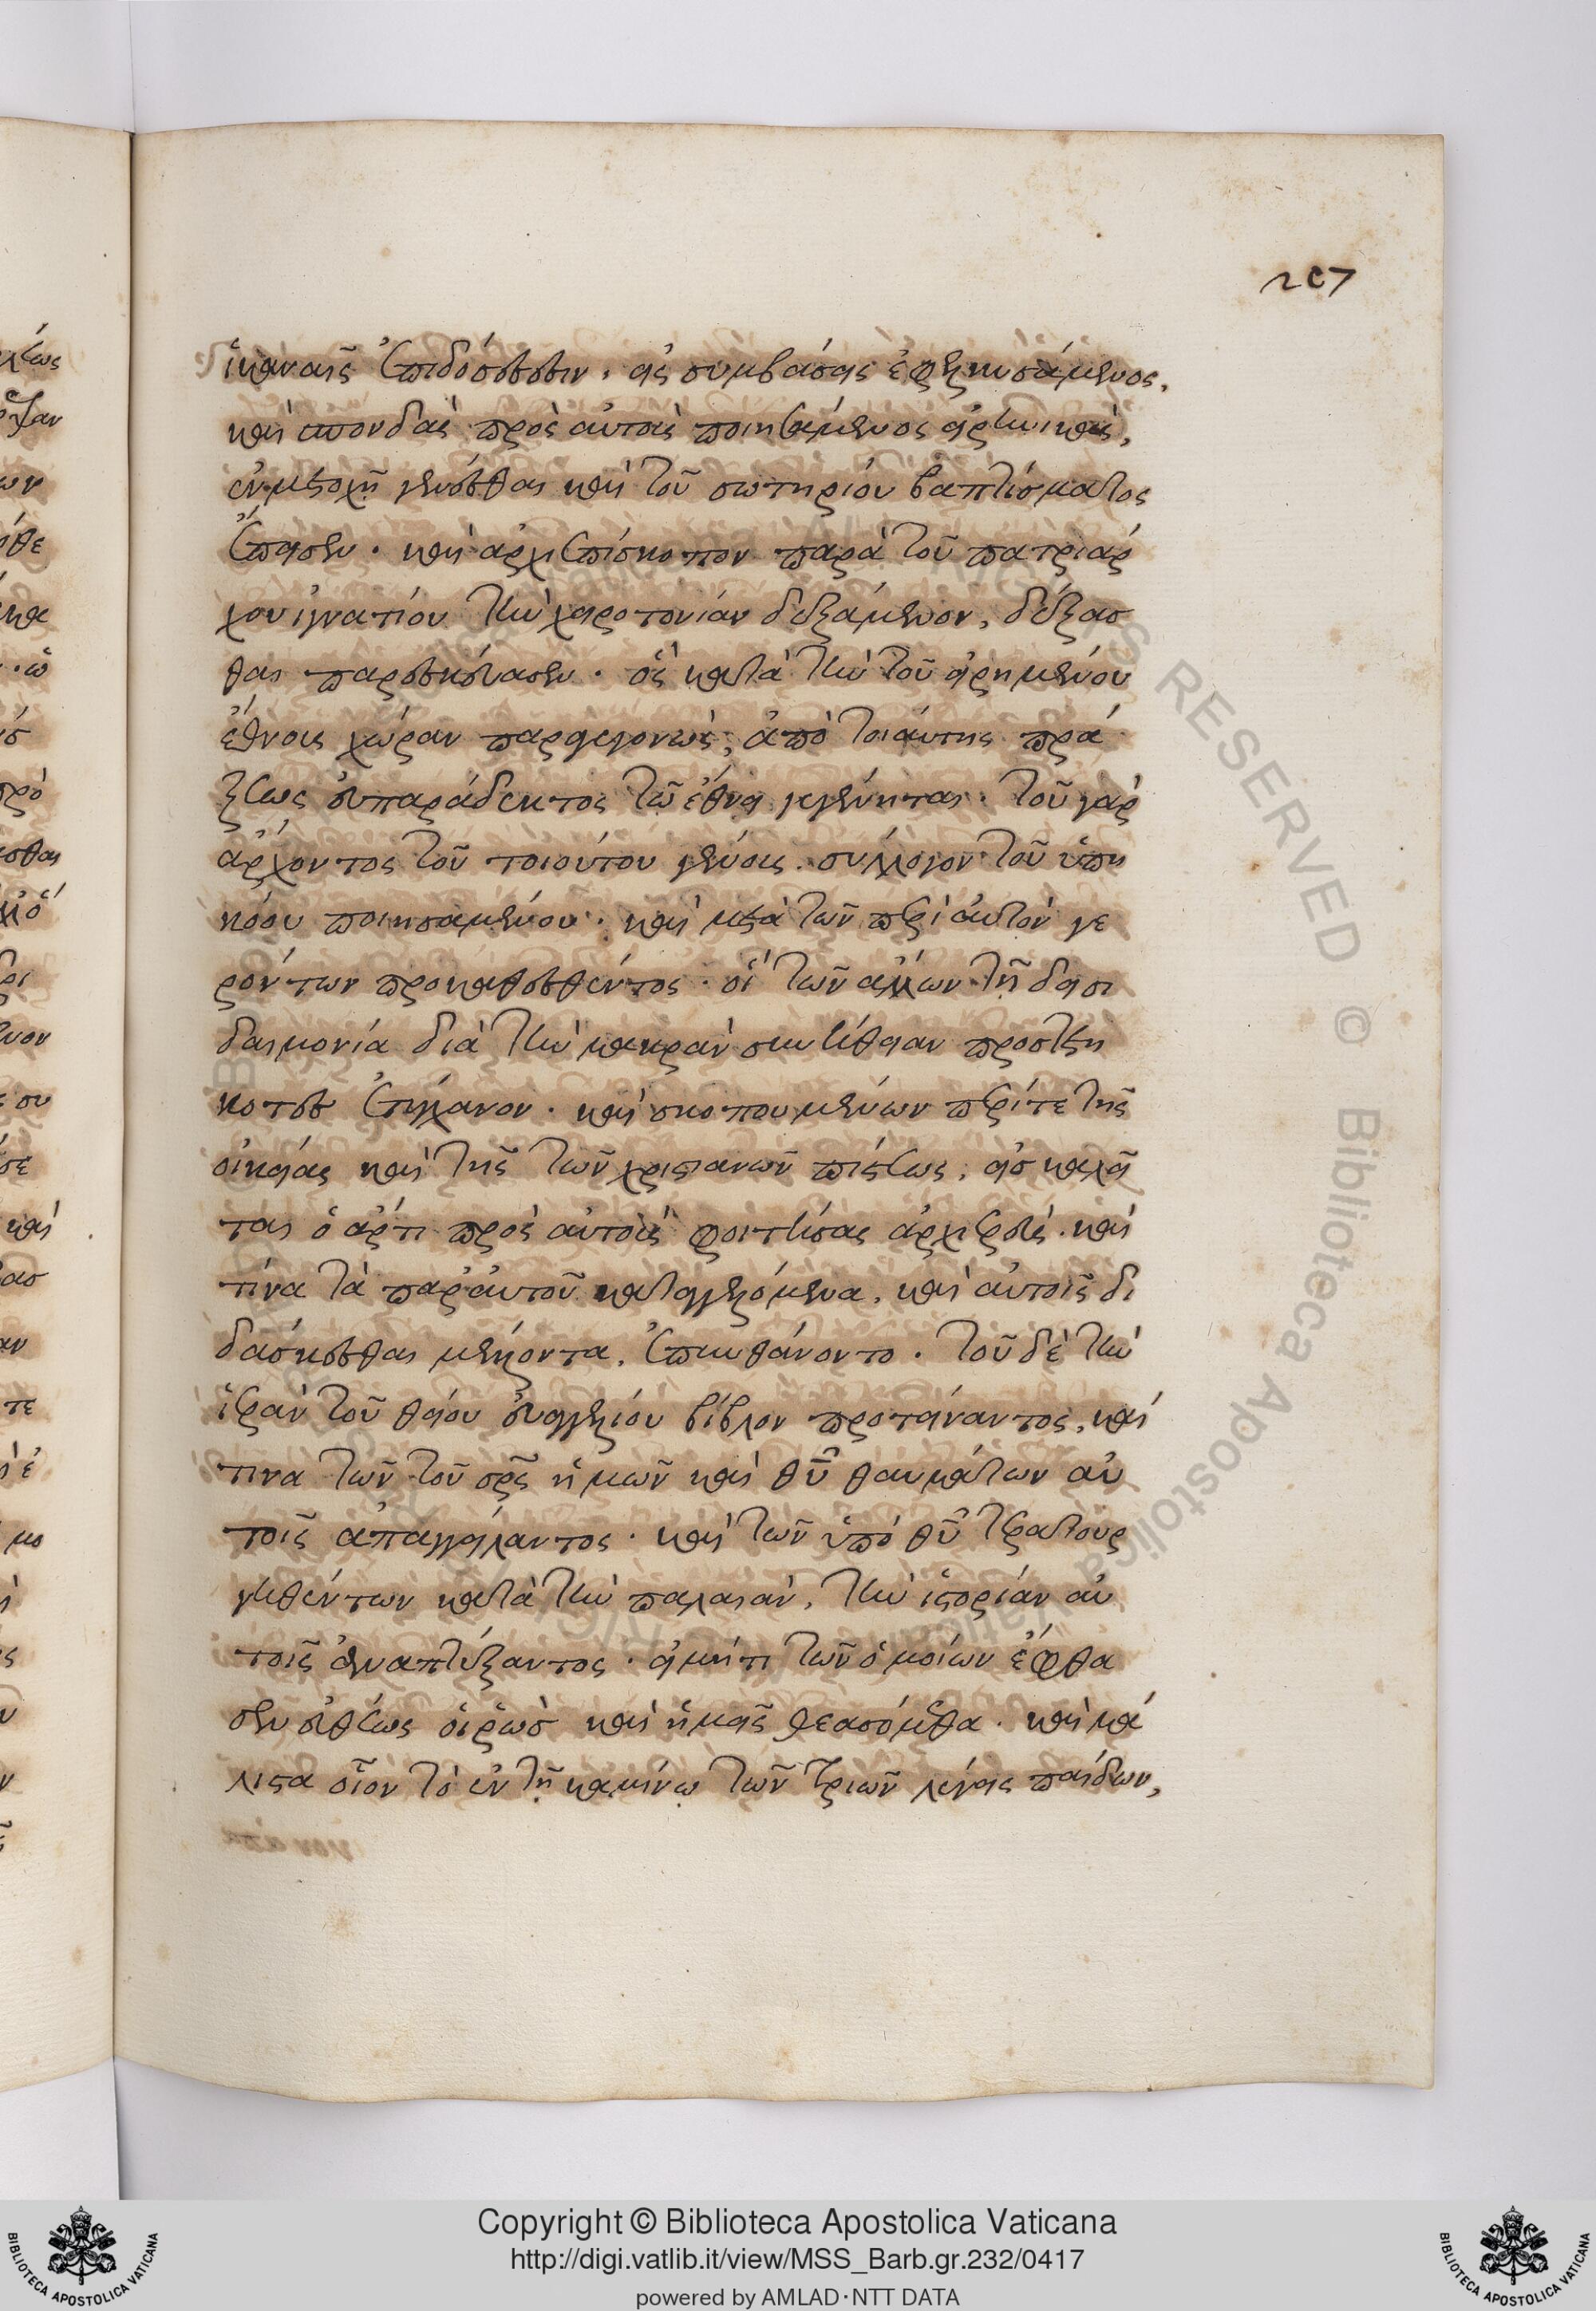 207
ἱκαναῖς ἐπιδόσεσιν, εἰς συμβάσεις ἐφελκυσάμενος,
καὶ σπονδὰς πρὸς αὐτοὺς ποιησάμενος εἰρηνικὰς,
ἐν μετοχῇ γενέσθαι καὶ τοῦ σωτηρίου βαπτίσματος
ἔπεισεν. καὶ ἀρχιεπίσκοπον παρὰ τοῦ πατριάρ
χου ἰγνατίου τὴν χειροτονίαν δεξάμενον, δέξασ
θαι παρεσκεύασεν. ὃς κατὰ τὴν τοῦ εἰρημένου
ἔθνους χώραν παραγεγονὼς, ἀπὸ τοιαύτης πρά
ξεως εὐπαράδεκτος τῷ ἔθνει γεγένηται. τοῦ γὰρ
ἄρχοντος τοῦ τοιούτου γένους. σύλλογον τοῦ ὑπη
κόου ποιησαμένου. καὶ μετὰ τῶν περὶ αὐτὸν γε
ρόντων προκαθεσθέντος. οἳ τῶν ἄλλων τῇ δεισι
δαιμονία διὰ τὴν μακρὰν συνήθειαν προστετη
κότες ἐτύγχανον. καὶ σκοπουμένων περί τε τῆς
οἰκείας καὶ τῆς τῶν χριστιανῶν πίστεως, εἰσκαλεῖ
ται ὁ ἄρτι πρὸς αὐτοὺς φοιτήσας ἀρχιερεύς. καὶ
τίνα τὰ παρ' αὐτοῦ καταγγελόμενα, καὶ αὐτοῖς δι
δάσκεσθαι μέλλοντα, ἐπυνθάνοντο. τοῦ δὲ τὴν
ἱερὰν τοῦ θείου εὐαγγελίου βίβλον προτείναντος, καί
τινα τῶν τοῦ σρς ἡμῶν καὶ θυ θαυμάτων αὐ
τοῖς ἀπαγγείλαντος. καὶ τῶν ὑπὸ θυ τερατουρ
γηθέντων κατὰ τὴν παλαιὰν, τὴν ἱστορίαν αὐ
τοῖς ἀναπτύξαντος. εἰ μήτι τῶν ὁμοίων ἔφθα
σεν εὐθέως οἱ ρὼς καὶ ἡμεῖς θεασόμεθα. καὶ μά
λιστα οἷον τὸ ἐν τῇ καμίνῳ τῶν τριῶν λέγεις παίδων,
Copyright © Biblioteca Apostolica Vaticana
http://digi.vatlib.it/view/MSS_Barb.gr.232/0417
powered by AMLAD·NTT DATA